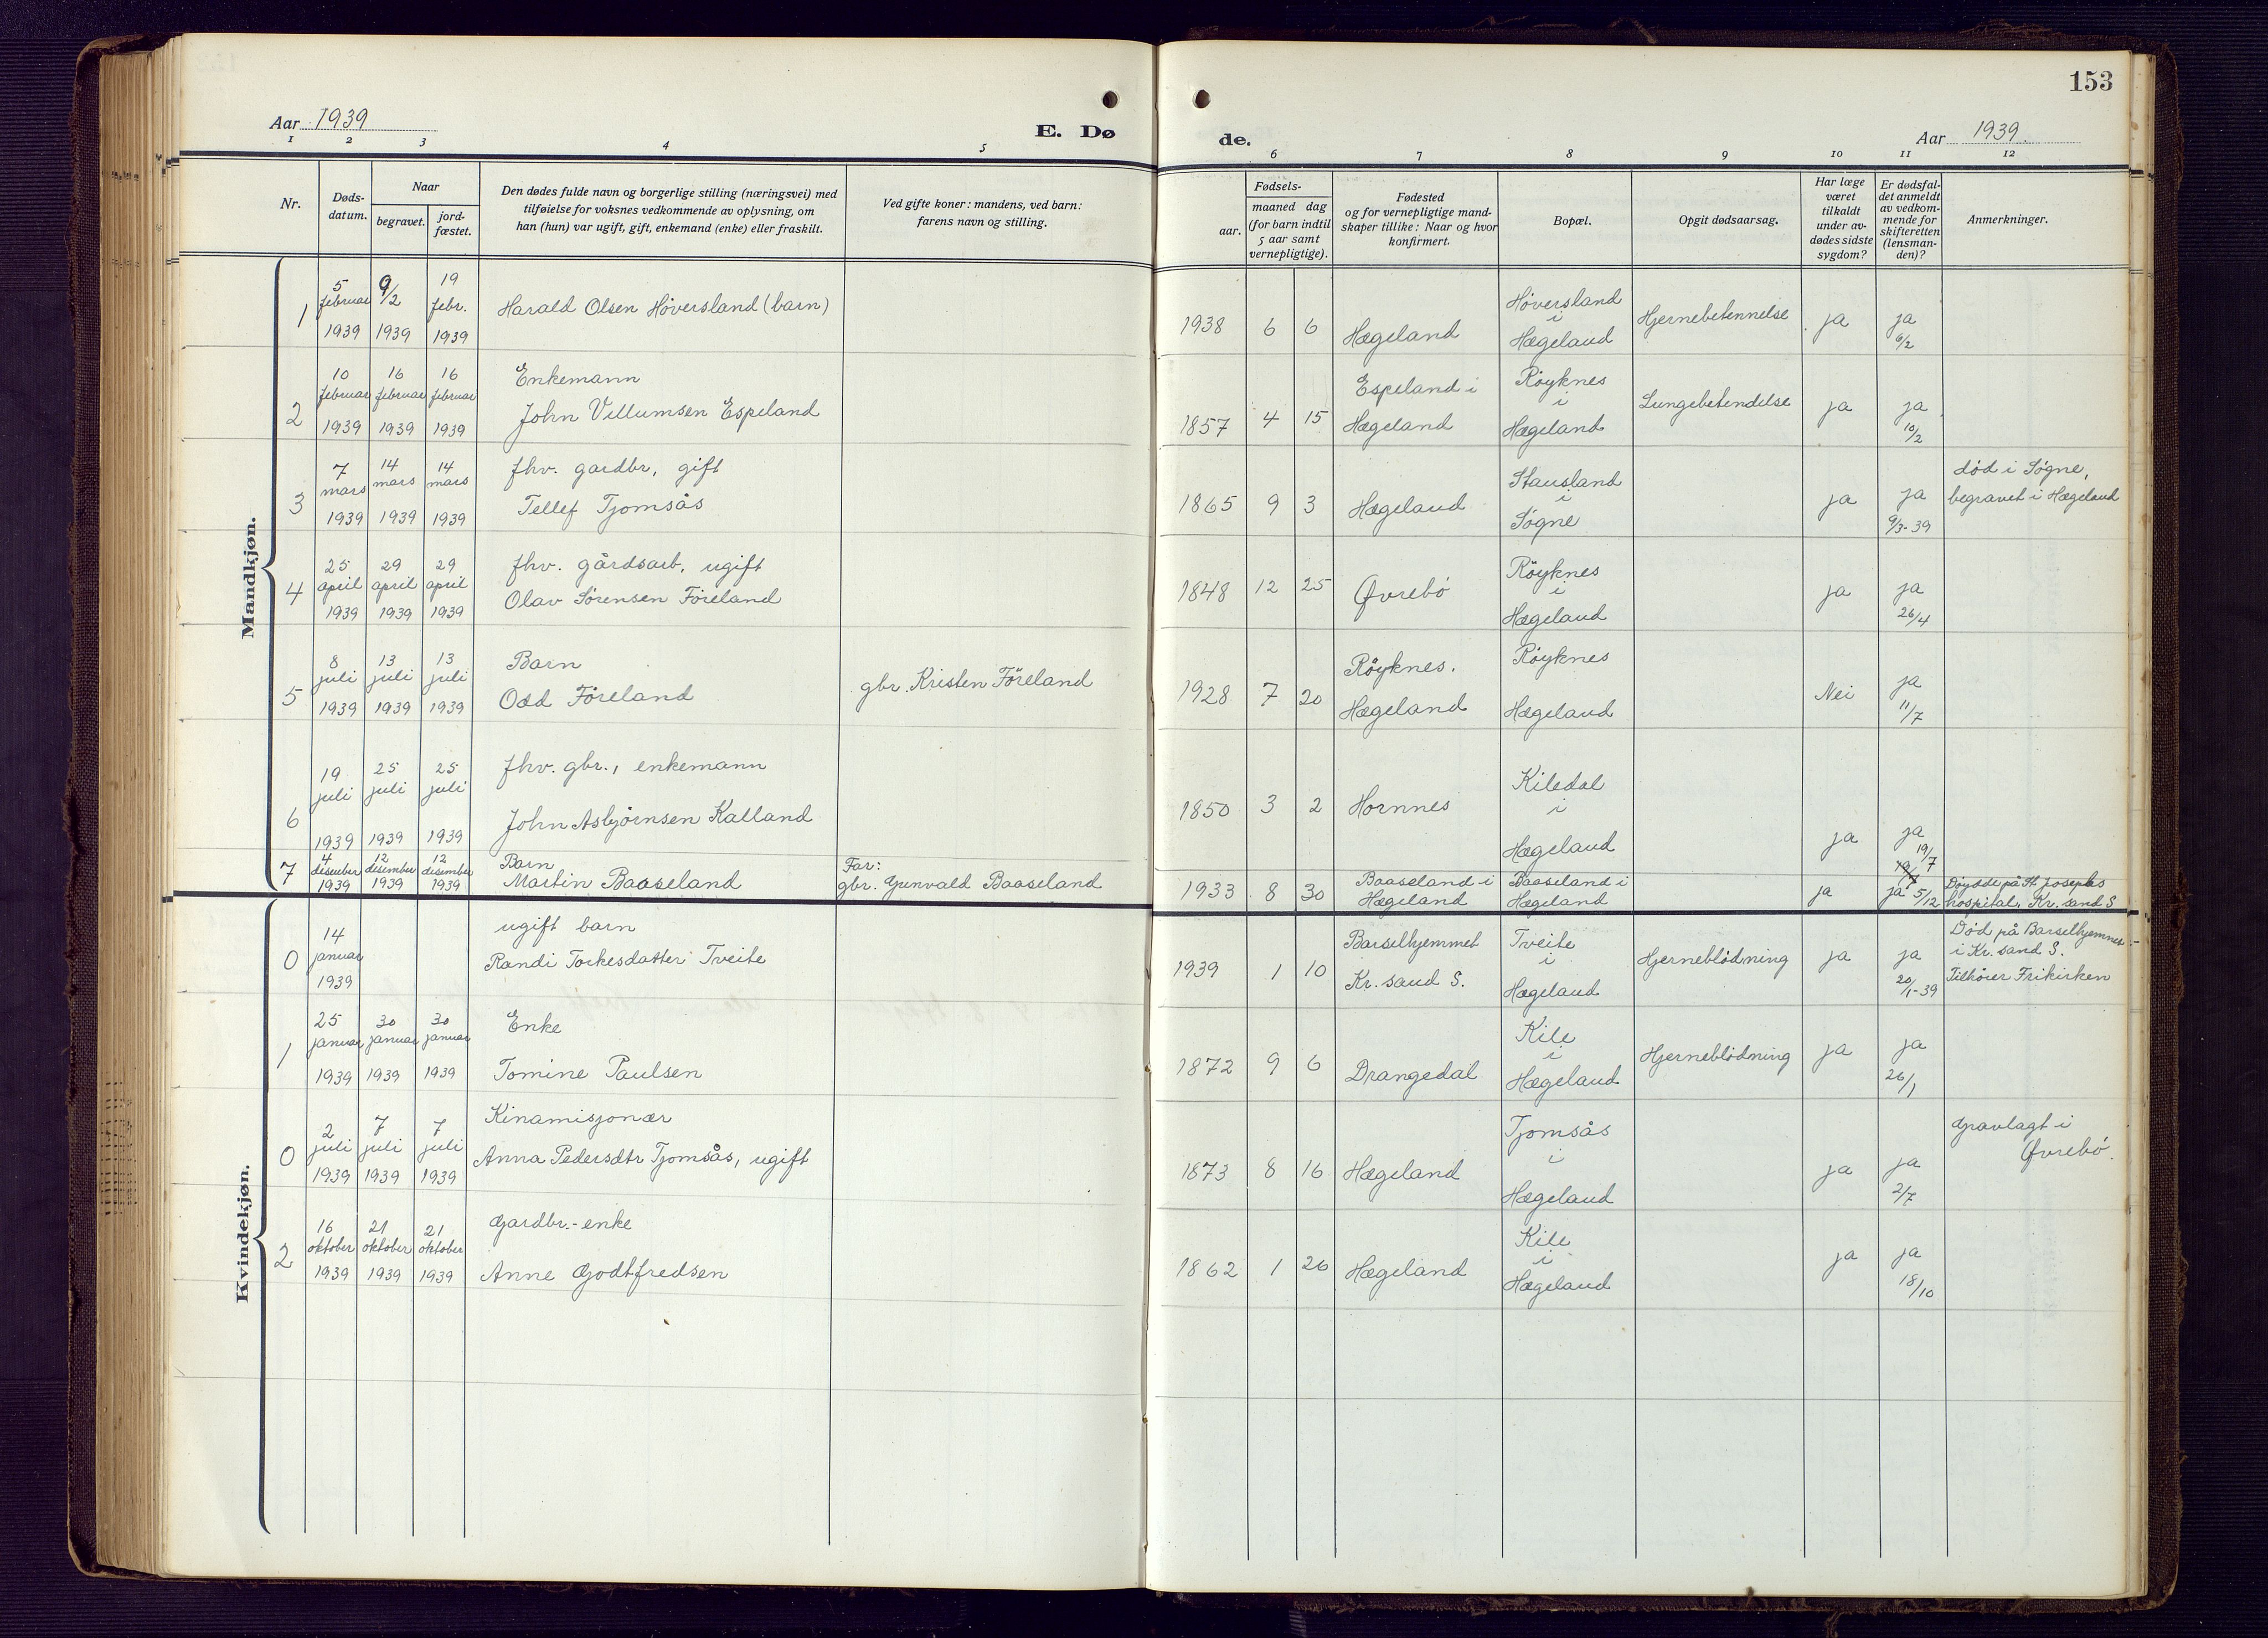 153
Aar 1939
E. Dø
de.
Aar 1939
1 2 3 4 5 6 7 8 9 10 11 12
Nr.
Døds-
datum.
Naar
begravet.
jord-
fæstet.
Den dødes fulde navn og borgerlige stilling (næringsvei) med
tilføielse for voksnes vedkommende av oplysning, om
han (hun) var ugift, gift, enkemand (enke) eller fraskilt.
Ved gifte koner: mandens, ved barn:
farens navn og stilling.
Fødsels-
aar.
maaned dag
(for barn indtil
5 aar samt
vernepligtige).
Fødested
og for vernepligtige mand-
skaper tillike: Naar og hvor
konfirmert.
Bopæl.
Opgit dødsaarsag.
Har læge
været
tilkaldt
under av-
dødes sidste
sygdom?
Er dødsfal-
det anmeldt
av vedkom-
mende for
skifteretten
(lensman-
den)?
Anmerkninger.
Mandkjøn.
1
5
februar
1939
9/2
1939
19
febr.
1939
Harald Olsen Höversland (barn)
1938 6 6
Hægeland
Höversland
i
Hægeland
Hjernebetennelse
ja
ja
6/2
2
10
februar
1939
16
februar
1939
16
februar
1939
Enkemann
John Villumsen Espeland
1857 4 15
Espeland i
Hægeland
Röyknes
i
Hægeland
Lungebetendelse
ja
ja
10/2
3
7
mars
1939
14
mars
1939
14
mars
1939
fhv. gardbr, gift
Tellef Tjomsås
1865 9 3
Hægeland
Stausland
i
Søgne
ja
ja
9/3-39
död i Søgne,
begravet i Hægeland
4
25
april
1939
29
april
1939
29
april
1939
fhv. gårdsarb, ugift
Olav Sørensen Föreland
1848 12 25
Øvrebö
Röyknes
i
Hægeland
ja
ja
26/4
5
8
juli
1939
13
juli
1939
13
juli
1939
Barn
Odd Föreland
gbr. Kristen Föreland
1928 7 20
Röyknes.
Hægeland
Röyknes
Hægeland
Nei
ja
11/7
6
19
juli
1939
25
juli
1939
25
juli
1939
fhv. gbr., enkemann
John Asbjørnsen Kalland
1850 3 2
Hornnes
Kiledal
i
Hægeland
ja
ja
19/7
7
4
desember
1939
12
desember
1939
12
desember
1939
Barn
Martin Baaseland
Far:
gbr. Gunvald Baaseland
1933 8 30
Baaseland i
Hægeland
Baaseland i
Hægeland
ja
ja 5/12
Döydde på St. Josephs
hospital, Kr. sand S
Kvindekjøn.
0
14
januar
1939
ugift barn
Randi Torkesdatter Tveite
1939 1 10
Barselhjemmet
Kr. sand S.
Tveite
i
Hægeland
Hjerneblödning
ja
ja
20/1-39
Död på Barselhjemmet
i Kr. sand S.
Tilhører Frikirken
1
25
januar
1939
30
januar
1939
30
januar
1939
Enke
Tomine Paulsen
1872 9 6
Drangedal
Kile
i
Hægeland
Hjerneblödning
ja
ja
26/1
0
2
juli
1939
7
juli
1939
7
juli
1939
Kinamisjonær
Anna Pedersdtr Tjomsås, ugift
1873 8 16
Hægeland
Tjomsås
i
Hægeland
ja
ja
2/7
Gravlagt i
Øvrebö.
2
16
oktober
1939
21
oktober
1939
21
oktober
1939
Gardbr.-enke
Anne Godtfredsen
1862 1 26
Hægeland
Kile
i
Hægeland
ja
ja
18/10